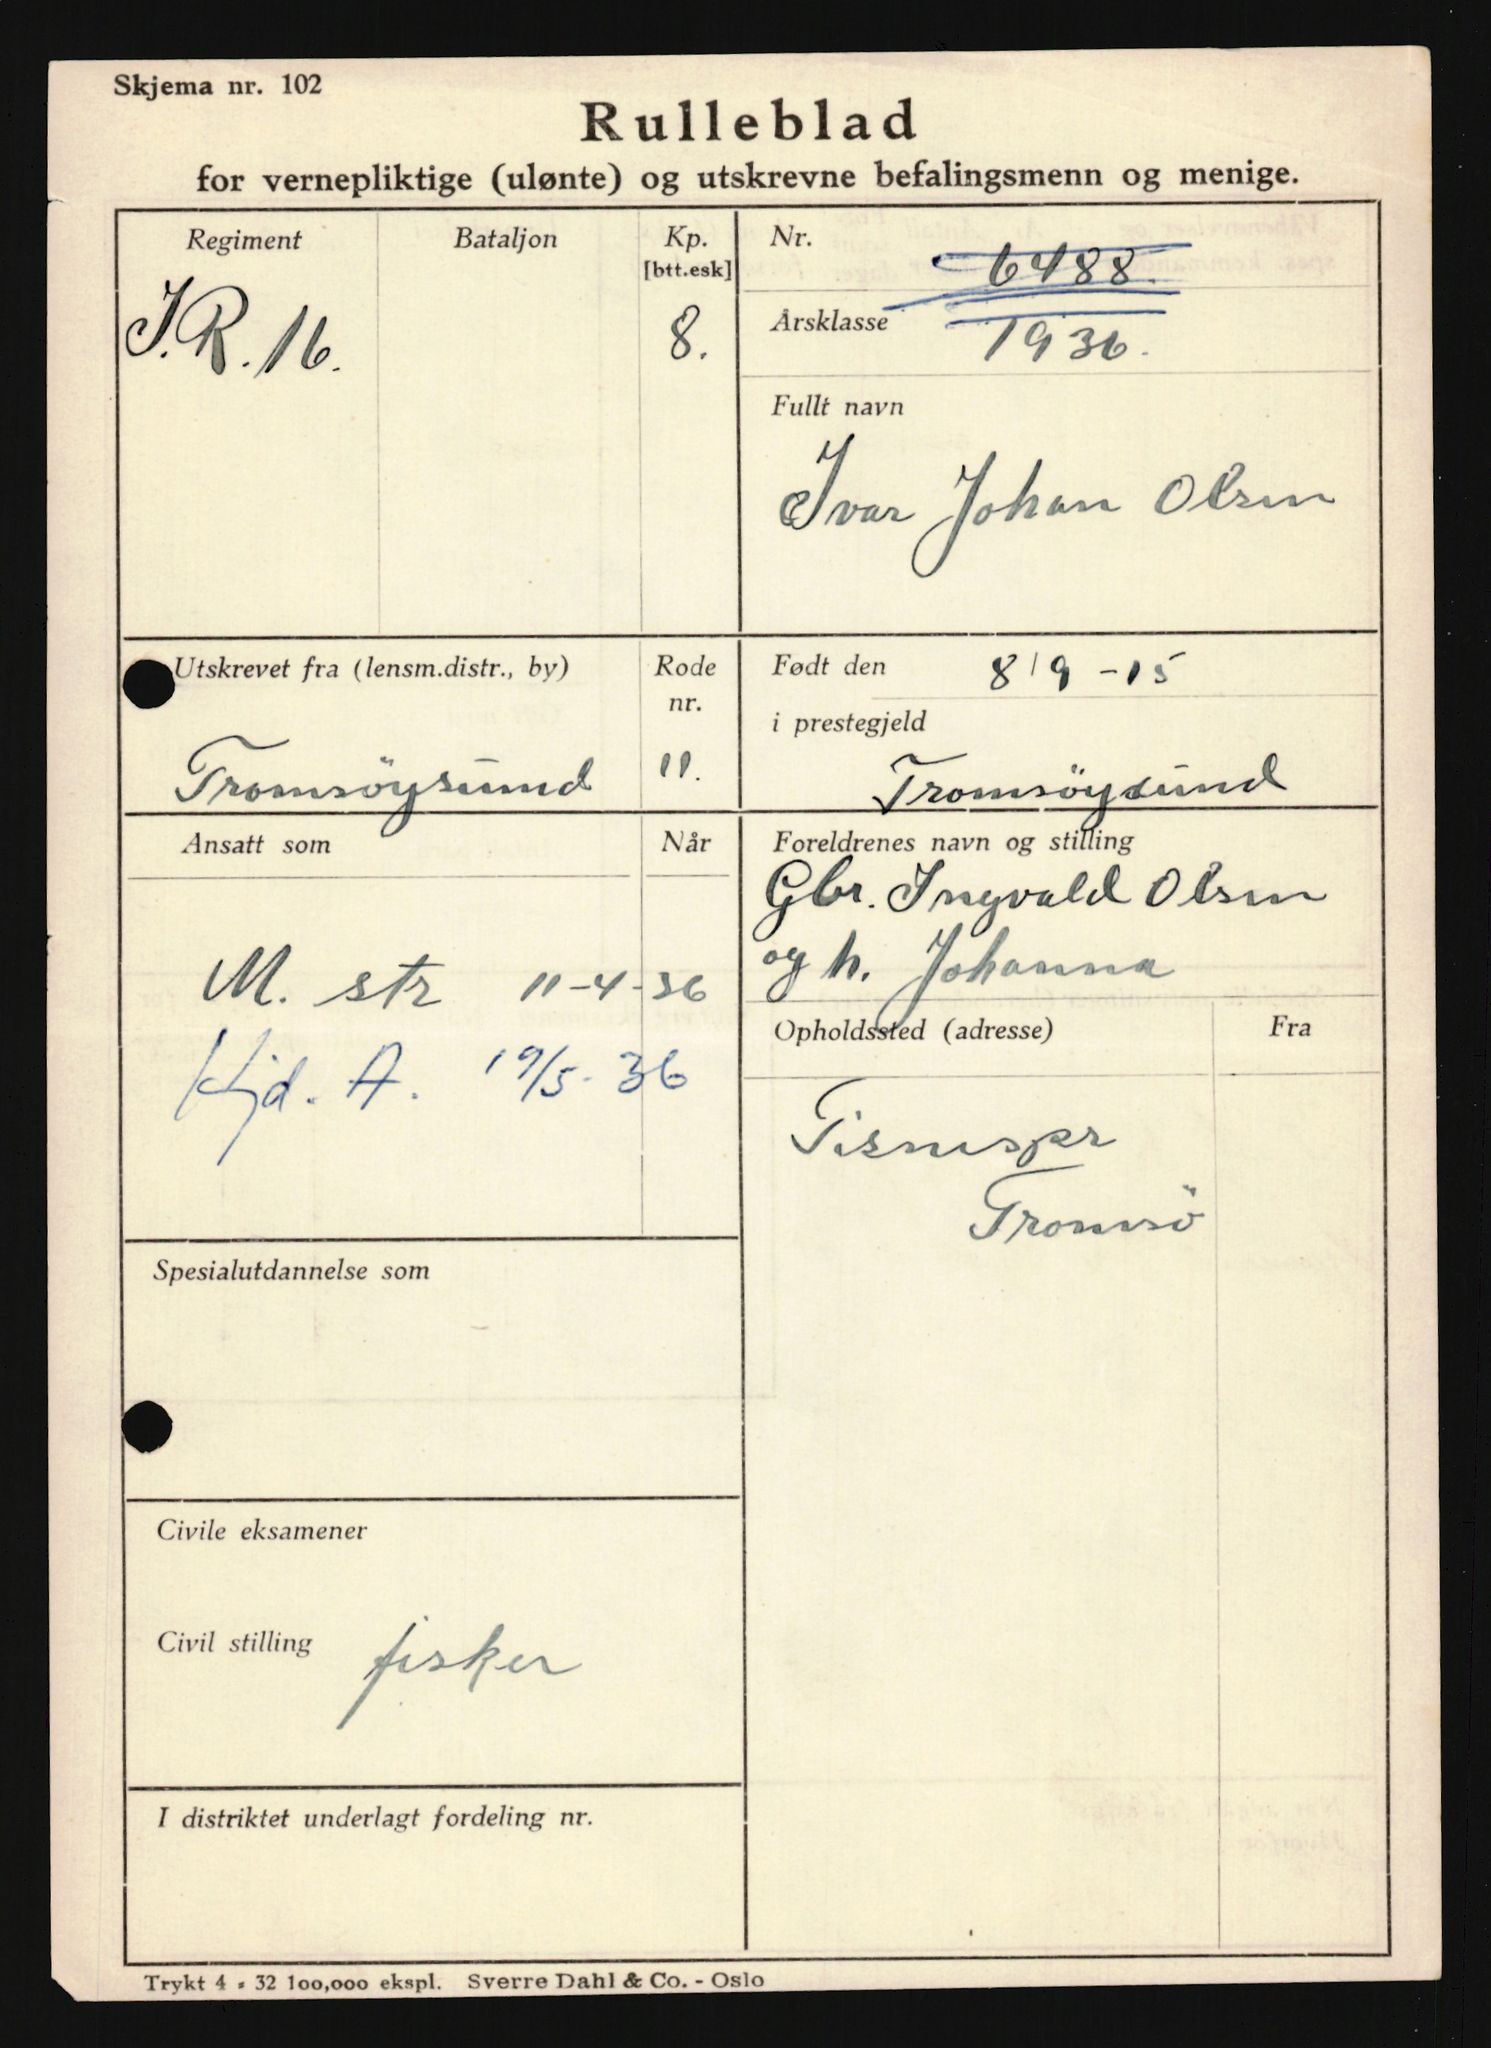 Skjema nr. 102
Rulleblad
for vernepliktige (ulønte) og utskrevne befalingsmenn og menige.
Regiment
Bataljon
Kp.
[btt.esk]
I.R. 16.
8.
Nr.
6488.
Årsklasse
1936.
Fullt navn
Ivar Johan Olsen
Utskrevet fra (lensm.distr., by)
Rode
nr.
Tromsöysund
11.
Født den
8/9 - 15
i prestegjeld
Tromsöysund
Ansatt som
Når
M. str 11-4-36
Hjd. A. 19/5-36
Foreldrenes navn og stilling
Gbr. Ingvald Olsen
og h. Johanna
Opholdssted (adresse)
Fra
Tromsö
Spesialutdannelse som
Civile eksamener
Civil stilling fisker
I distriktet underlagt fordeling nr.
Trykt 4 - 32 100,000 ekspl. Sverre Dahl & Co. - Oslo